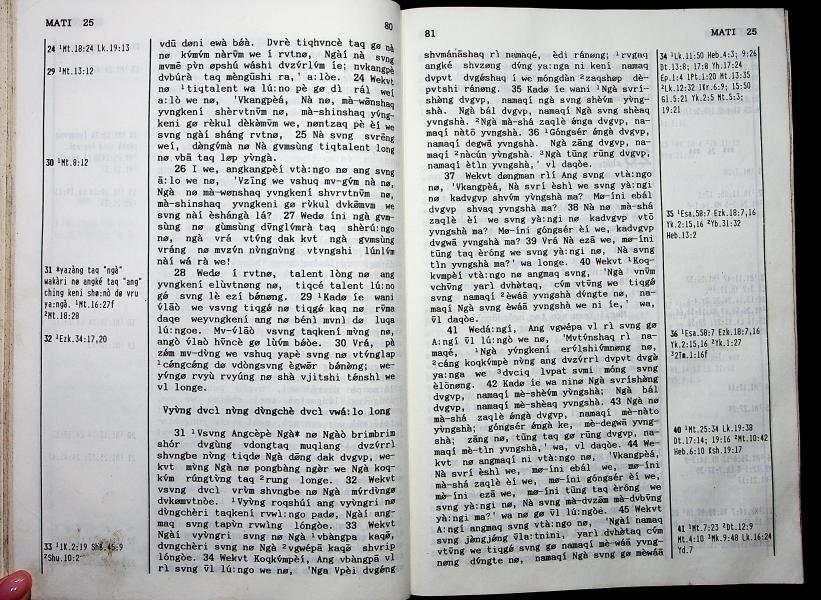 MATI 25
80
24 ¹Mt.18:24 Lk.19:13
29 ¹Mt.13:12
30 ¹Mt.8:12
31 *yazàng taq "ngà"
wakàri nø angké taq "ang"
ching keni shø:nò dø vru
ya:ngà. ¹Mt.16:27f
²Mt.18:28
32 ¹Ezk.34:17,20
33 ¹1K.2:19 Shà.45:9
²Shu.10:2
vdū døni ewà bǿà. Dvrè tiqhvncè taq gø nà
nø kv́mv́m nàrv̄m we í rvtnø, Ngàí nà svng
mvmē pv̀n øpshú wáshì dvzv́rlv́m íe; nvkangpè
dvbúrà taq mèngūshì ra,' a:lòe. 24 Wekvt
nø ¹tiqtalent wa lú:nò pè gø dl̀ rál weí
a:lò we nø, 'Vkangpèá, Nà nø, mà-wǿnshaq
yvngkení shèrvtnv̄m nø, mà-shinshaq yv́ng-
kení gø rèkul dèkǿmv̄m we, nøntzaq pè èí we
svng ngàí shǎng rvtnø, 25 Nà svng svrēng
weí, dèngv́mà nø Ngà gvmsùng tiqtalent long
nø vbā taq løp yv̀ngà.
26 I we, angkangpèí vtà:ngo nø ang svng
ā:lo we nø, 'Vzīng we vshuq mv-gv́m nà nø,
Ngà nø mà-wønshaq yvngkení shvrvtnv̄m nø,
mà-shinshaq yvngkení gø rv̀kul dvkǿmv̄m we
svng nàí èshángà lá? 27 Wedø íní ngà gvm-
sùng nø gùmsùng dv̄nglv́mrà taq shèrú:ngo
nø, ngà vrá vtv́ng dak kvt ngà gvmsùng
vráng nø mvzv́n nv̀ngnv̀ng vtvngshì lúnlv́m
nàí wá rà we!
28 Wedø í rvtnø, talent lòng nø ang
yvngkení elùvtnøng nø, tiqcé talent lú:no
gǿ svng lè ezí bǿnøng. 29 ¹Kadø íe waní
v́làò we vsvng tiqgé nø tiqgé kaq nø rv̄ma
daqe weyvngkení ang nø bénì mvnì dø luqa
lú:ngoe. Mv-v́làò vsvng taqkení mv̀ng nø,
angò v́laò hv̄ncè gø lùv́m bǿòe. 30 Vrá, pà
zǿm mv-dv̀ng we vshuq yapè svng nø vtv́nglap
¹cénggcéng dø vdòngsvng ègwǣr bǿnòng; we-
yv́ngø rvyù rvyúng nø shà vjitshì tǿnshl̀ we
vl longe.
Vyv̀ng dvcl nv̀ng dv̀ngchè dvcl vwá:lo long
31 ¹Vsvng Angcèpè Ngà* nø Ngàò brimbrim
shór dvgūng vdongtaq muqlang dvzv́rrì
shvngbe nv̀ng tiqdø Ngà dǣng dak dvgvp, we-
kvt mv̀ng Ngà nø pongbàng ngǿr we Ngà koq-
kv́m rúngtv̀ng taq ²rung longe. 32 Wekvt
vsvng dvcl vrv́m shvngbe nø Ngà mv́rdv̀ngø
dvkømvtnòe. ¹Vyv̀ng roqshúí ang vyv̀ngrì nø
dv̀ngchèrì taqkení rvwl:ngo padø, Ngàí ang-
maq svng tapv̀n rvwìng lóngòe. 33 Wekvt
Ngàí vyv̀ngrì svng nø Ngà ¹vbàngpa kaqø̄,
dvngchèrì svng nø Ngà ²vgwépà kaqø̄ shvrip
lóngòe. 34 Wekvt Koqkv́mpèí, Ang vbàngpā vl
rì svng v̄l lú:ngò we nø, 'Nga Vpèi dvgǿng
81
MATI 25
shvmánàshaq rì nømaqé, èdi ránøng; ¹rvgaq
angké shvzøng dv́ng ya:nga ní kení namaq
dvpvt dvgǿshaq í we móngdàn ²zaqshøp dè-
pvtshì ránøng. 35 Kadø íe wani ¹Ngà svrí-
shàng dvgvp, namaqí ngà svng shèv́m yv́ng-
shà. Ngà bál dvgvp, namaqí Ngà svng shèaq
yvngshà. ²Ngà mà-shá zaqlè ǿnga dvgvp, na-
maqí nàtō yvngshà. 36 ¹Góngsér ǿngà dvgvp,
namaqí degwā yvngshà. Ngà zāng dvgvp, na-
maqí ²nàcún yv̀ngshà. ³Ngà tūng rūng dvgvp,
namaqí ètl̀n yvngshà,' vl daqòe.
37 Wekvt døngman rìí Ang svng vtà:ngo
nø, 'Vkangpèá, Nà svrí èshl̀ we svng yà:ngi
nø kadvgvp shvv́m yìngshà ma? Mø-íni ebál
dvgvp shvaq yvngshà ma? 38 Nà nø mà-shá
zaqlè èí we svng yà:ngi nø kadvgvp vtō
yvngshà ma? Mø-íni góngsér èí we, kadvgvp
dvgwā yvngshà ma? 39 Vrá Nà ezā we, mø-íni
tūng taq èróng we svng yà:ngi nø, Nà svng
tl̀n yvngshà ma?' wa longe. 40 Wekvt ¹Koq-
kvmpèí vtà:ngo nø angmaq svng, 'Ngà vnv̄m
vchv̄ng yarl dvhètaq, cv́m vtv̄ng we tiqgé
svng namaqí ²èwáā yv̀ngshà dv́ngte nø, na-
maqí Ngà svng èwáā yvngshà we ni íe,' wa,
vl daqòe.
41 Wedá:ngí, Ang vgwépa vl rì svng gø
A:ngí v̄l lú:ngò we nø, 'Mvtv́nshaq rì na-
maqé, ¹Ngà yv́ngkení ervlshìvmnøng nø,
²cáng koqkv́mpè nv̀ng ang dvzv́rrì dvpvt dvgǿ
ya:nga we ³dvciq lvpat svmì móng svng
èlōnøng. 42 Kadø íe wa nínø Ngà svríshàng
dvgvp, namaqí mè-shèv́m yv̀ngshà; Ngà bál
dvgvp, namaqí mè-shèaq yv́ngshà. 43 Ngà nø
mà-shá zaqlè èngà dvgvp, namaqí mè-nàto
yv́ngshà; góngsér ǿngà ke, mè-degwā yvng-
shà; zāng nø, tūng taq gø rūng dvgvp, na-
maqí mè-tìn yv́ngshà,' wa, vl daqòe. 44 We-
kvt nø angmaqí ni vtà:ngo nø, 'Vkangpèá,
Nà svrí èshl̀ we, mø-íni ebál we, mø-íni
mà-shá zaqlè èí we, mø-íni góngsér èí we,
mø-íni ezā we, mø-íni tūng taq èróng we
svng yà:ngi nø, Nà svng mà-dvzǿm mà-dvbv̄ng
yà:ngi ma?' wa nø gø v̄l lú:ngòe. 45 Wekvt
A:ngí angmaq svng vtà:ngo nø, 'Ngàí namaq
svng jèngjèng v̄la:tnìní, yarl dvhètaq cv́m
vtv̄ng we tiqgé svng gø namaqí mè-wáā yvng-
nøng dv́ngte nø, namaqí Ngà svng gø mèwáā
34 ¹Lk.11:50 Heb.4:3; 9:26
Dt.13:8; 17:8 Yh.17:24
Ep.1:4 1Pt.1:20 Mt.13:35
²Lk.12:32 1Kr.6:9; 15:50
Gl.5:21 Yk.2:5 Mt.5:3;
19:21
35 ¹Esa.58:7 Ezk.18:7,16
Yk.2:15,16 ²Yb.31:32
Heb.13:2
36 ¹Esa.58:7 Ezk.18:7,16
Yk.2:15,16 ²Yk.1:27
³2Tm.1:16f
40 ¹Mt.25:34 Lk.19:38
Dt.17:14; 19:16 ²Mt.10:42
Heb.6:10 Ksh.19:17
41 ¹Mt.7:23 ²Dt.12:9
Mt.4:10 ³Mk.9:48 Lk.16:24
Yd.7